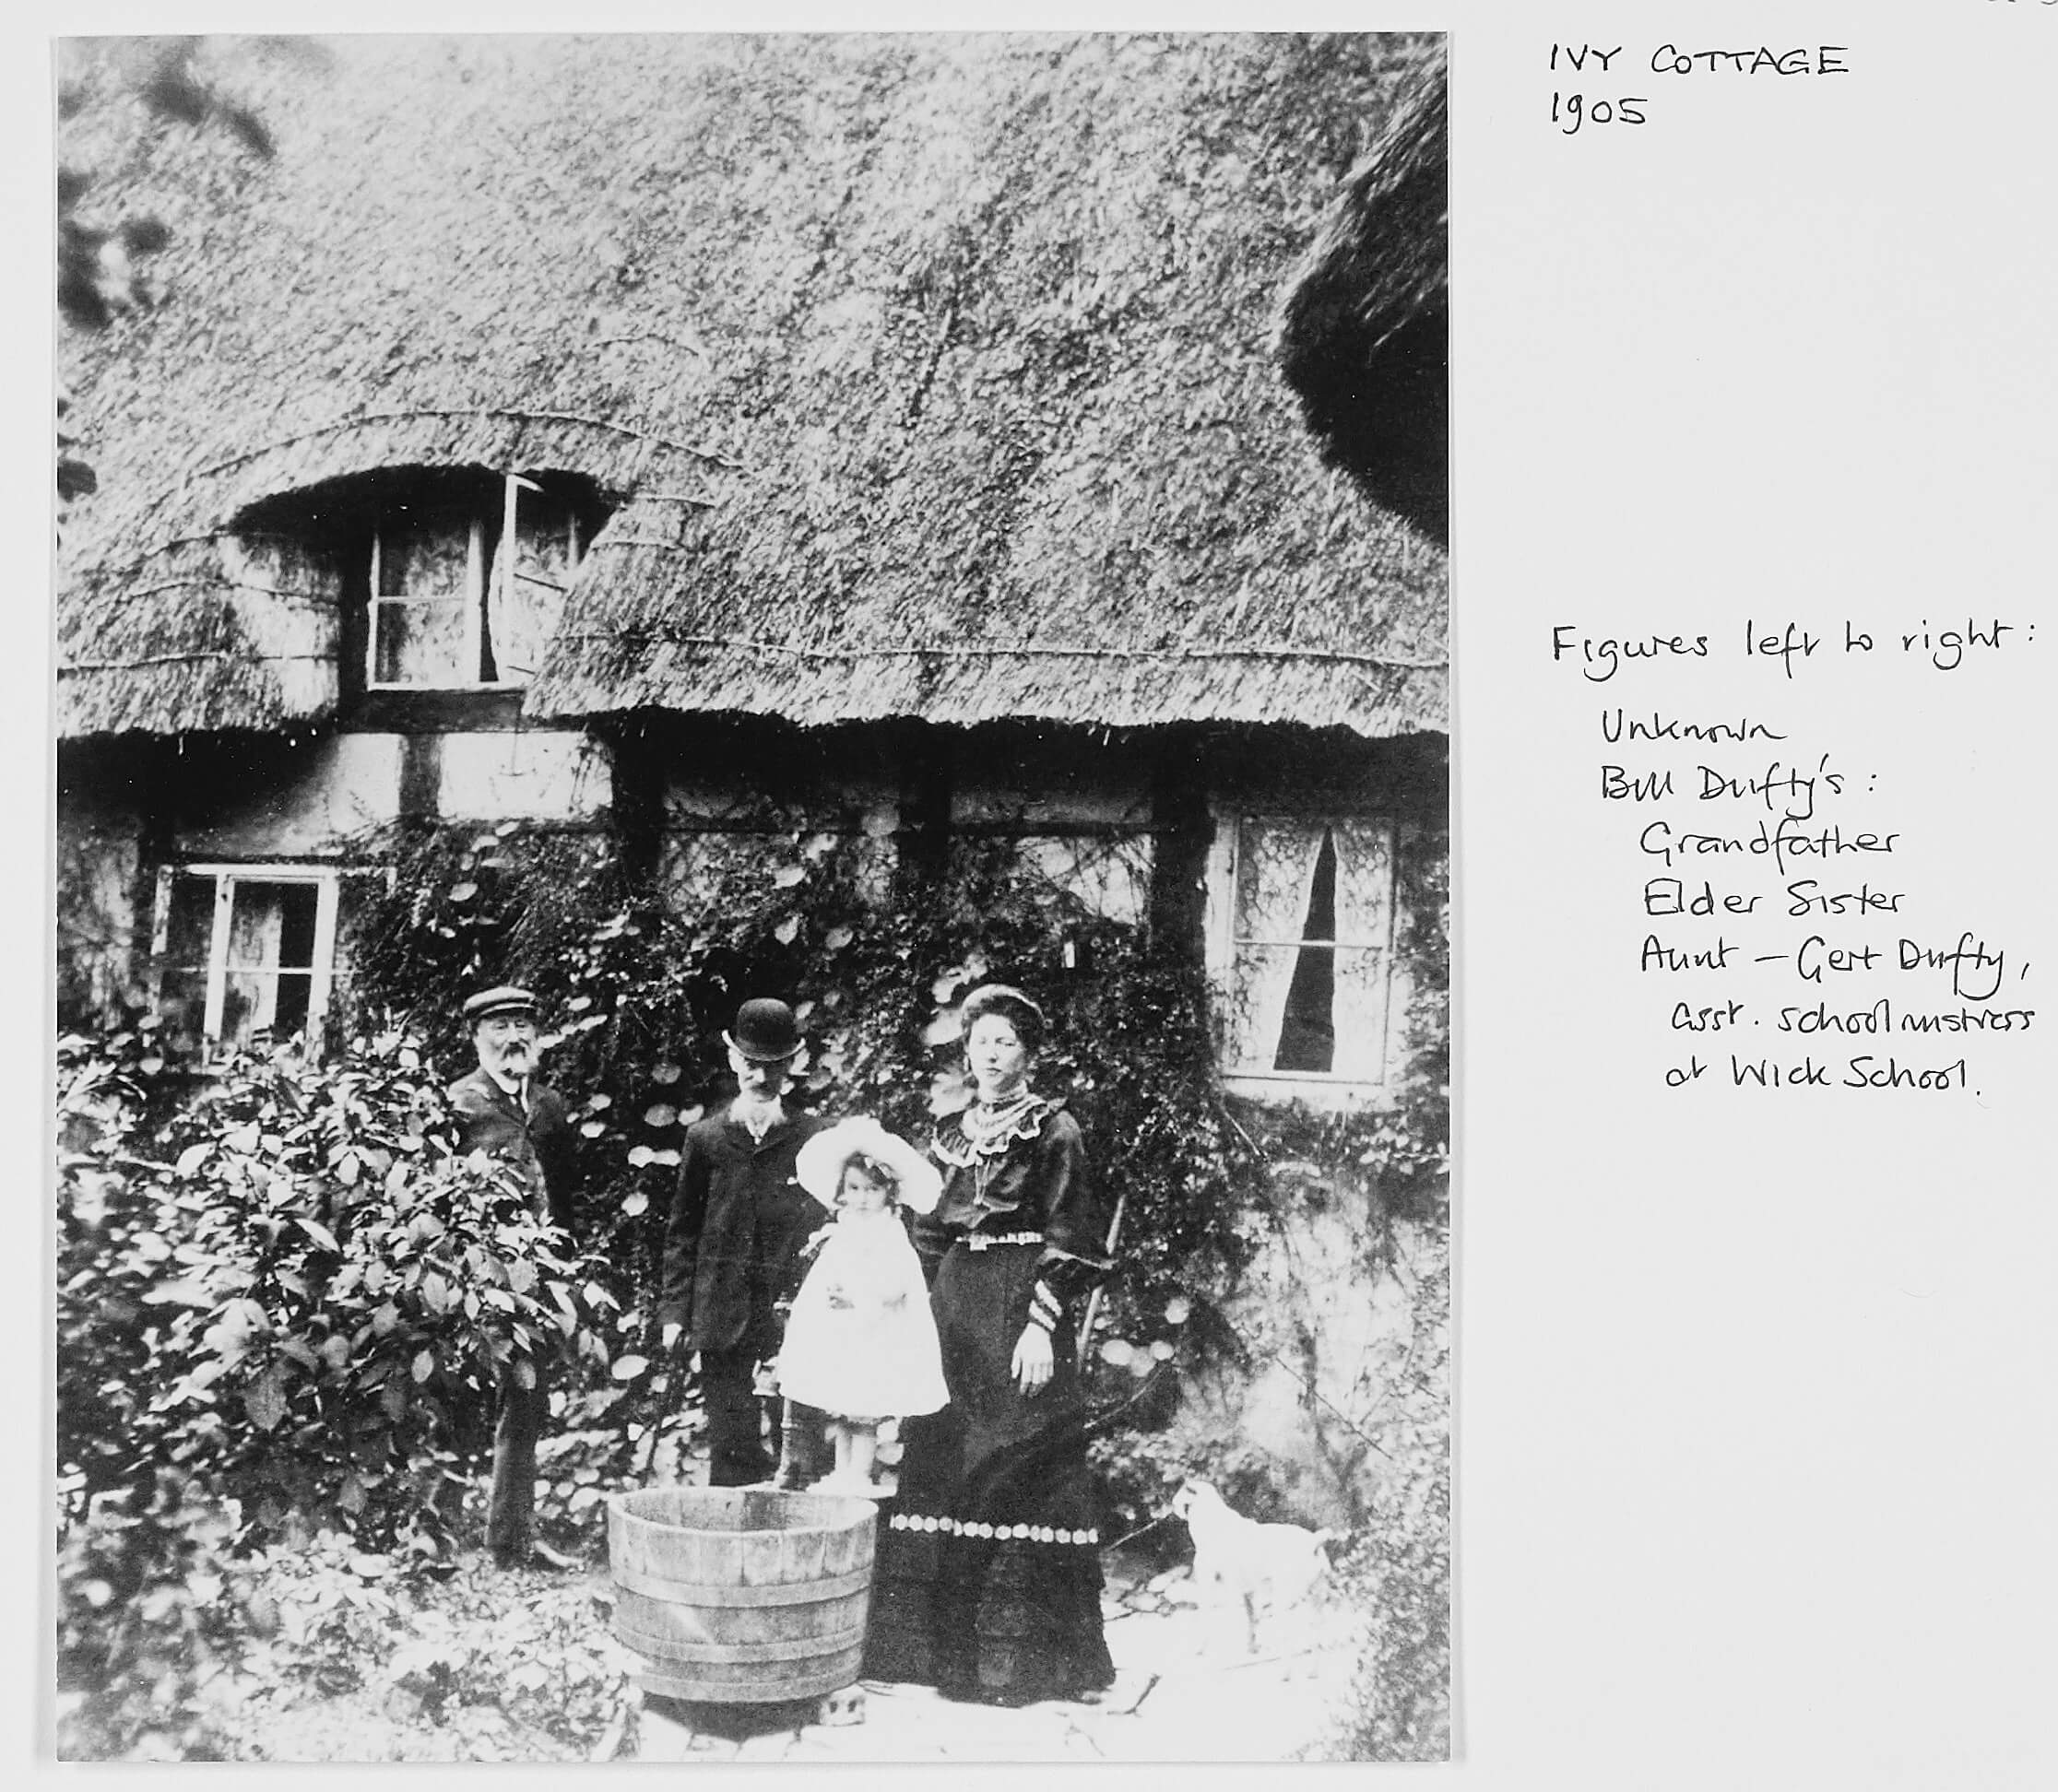 IVY COTTAGE
1905
Figures left to right:
Unknown
Bill Dufty's:
Grandfather
Elder Sister
Aunt – Gert Dufty,
asst. schoolmistress
at Wick School.